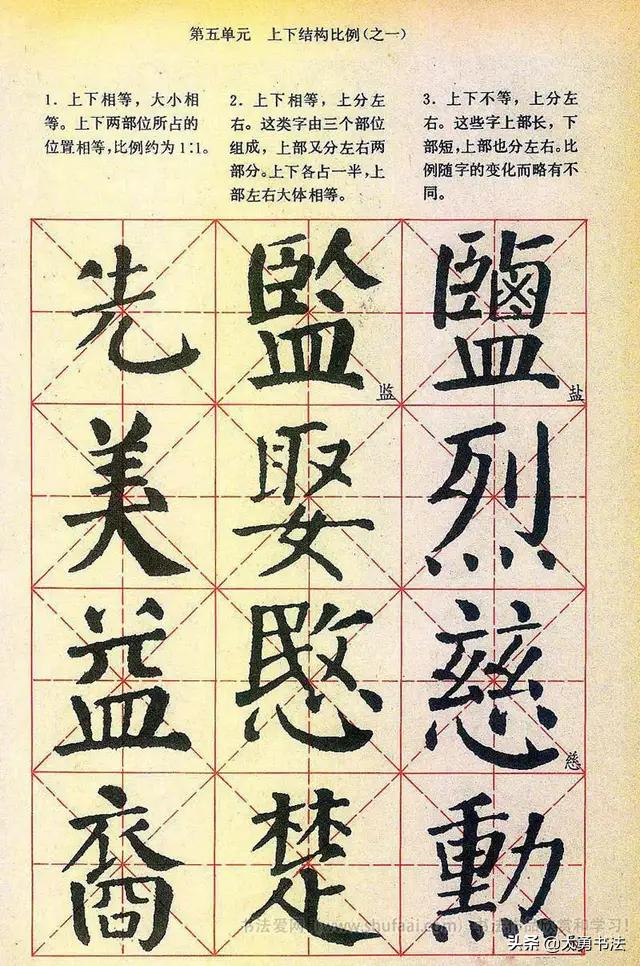 第五单元　上下结构比例(之一)
1. 上下相等，大小相
等。上下两部位所占的
位置相等，比例约为1∶1。
2. 上下相等，上分左
右。这类字由三个部位
组成，上部又分左右两
部分。上下各占一半，上
部左右大体相等。
3. 上下不等，上分左
右。这些字上部长，下
部短，上部也分左右。比
例随字的变化而略有不
同。
先 監 监 鹽 盐
美 娶 烈
益 愍 慈 慈
裔 楚 勲
书法爱网(www.shufaai.com)-书法作品欣赏和学习!
头条 @大勇书法